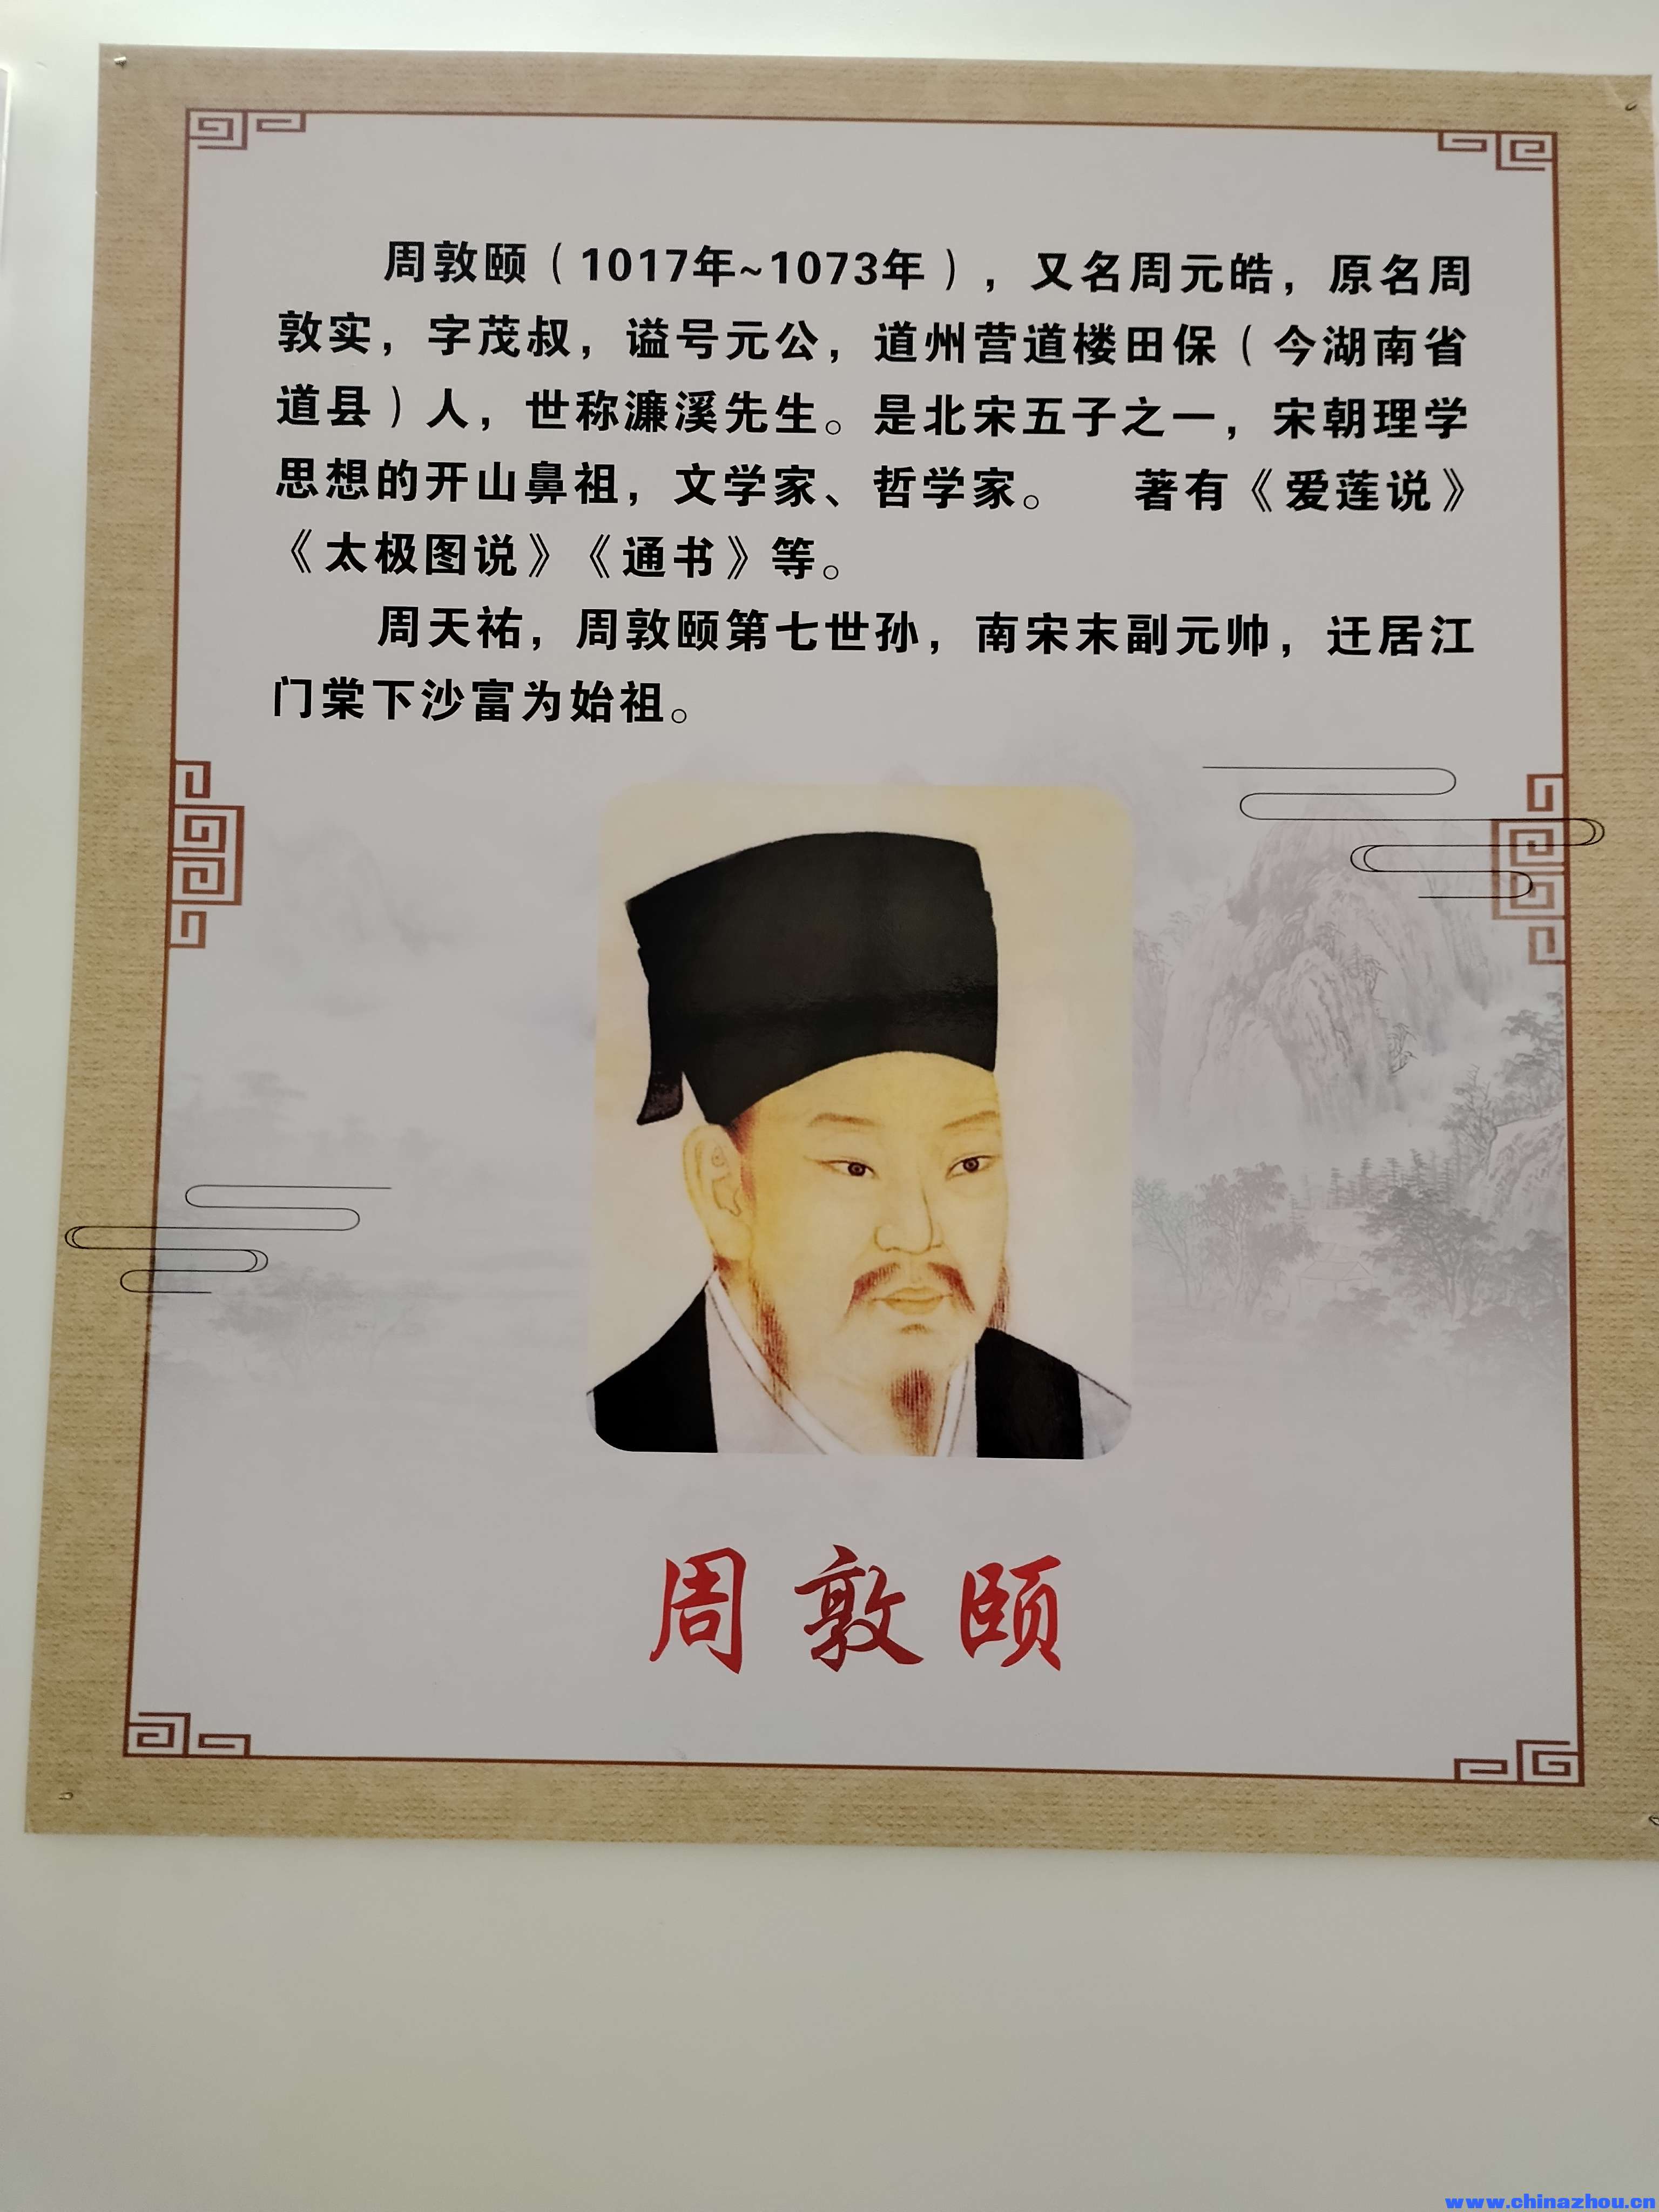 周敦颐（1017年~1073年），又名周元皓，原名周
敦实，字茂叔，谥号元公，道州营道楼田保（今湖南省
道县）人，世称濂溪先生。是北宋五子之一，宋朝理学
思想的开山鼻祖，文学家、哲学家。 著有《爱莲说》
《太极图说》《通书》等。
周天祐，周敦颐第七世孙，南宋末副元帅，迁居江
门棠下沙富为始祖。
周敦颐
www.chinazhou.cn